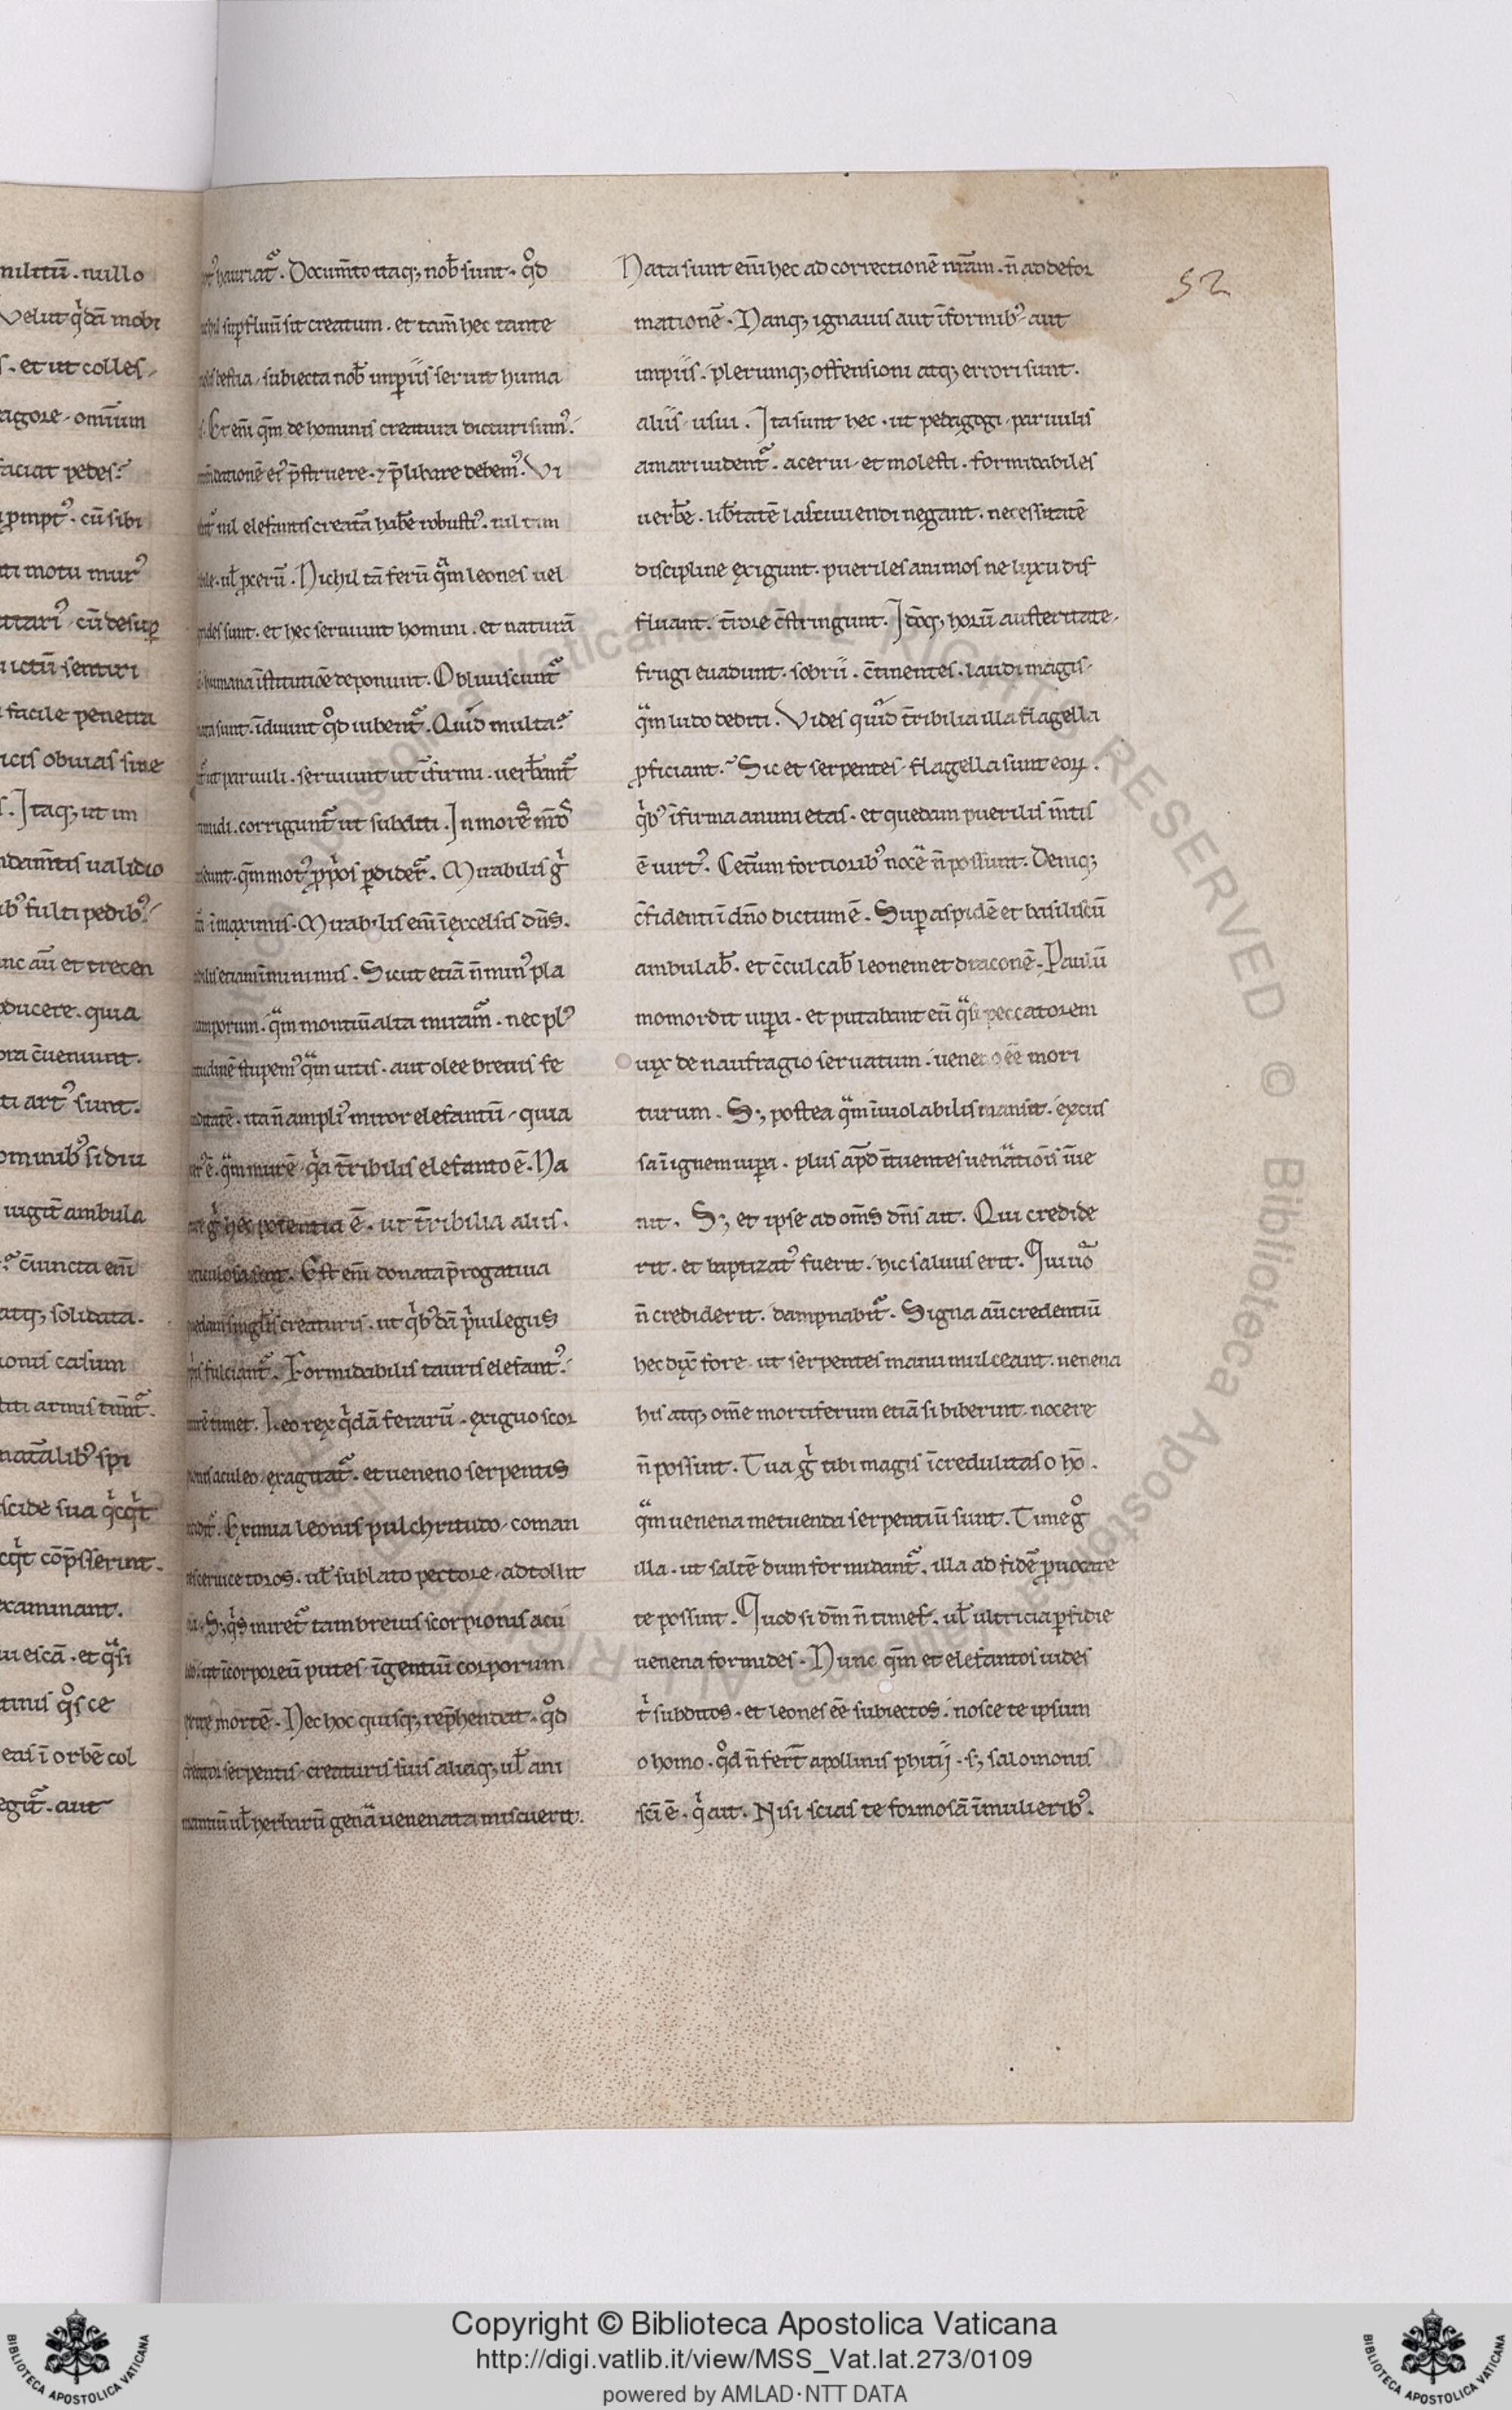 militū . nullo
Velut qͥdā mobi
ſ . et ut colleſ
agore . omīum
faciat pedeſ?
ꝓmptꝰ . cū ſibi
ti motu murꝰ
cū deſuꝑ
ictū ſentiri
facile penetra
iciſ obuiaſ ſine
ſ . Itaqꝫ ut im
ndam̄tiſ ualidio
ibꝰ fulti pedibꝰ
nc aū et trecen
oducere . quia
ora c̄ueniunt .
ti artꝰ ſunt .
ominibꝰ ſi diu
uigīt ambula
c̄iuncta eni̅
atqꝫ ſolidata .
oniſ caſum
titi armiſ
natālibꝰ ſpi
ſcide ſua qͥcqͥt
cqͥt cōp̄ſſerint .
xaminant .
ui eſcā . et qͣſi
tiniſ qͦſ ce
eaſ ī orbē col
egit᷑ . aut
hauriat᷑ . Docum̄to itaqꝫ nob̄ ſunt . qͦd
ſuꝑfluū ſit creatum . et tam̄ hec tante
beſtia . ſubiecta nob̄ imꝑiiſ ſeruit huma
Et eni̅ qm̄ de hominiſ creatura dicturi ſumꝰ .
eiꝰ p̄ſtruere . ⁊ p̄libare debemꝰ . Vi
nil elefantiſ creatā hab̄e robuſtiꝰ . nil tim
ul̄ ꝓcerū . Nichil tā ferū qͣm leoneſ uel
ſunt . et hec ſeruiunt homini . et naturā
humana īſtitutiōe deponunt . Obliuiſcunt᷑
ſunt . īduunt qͦd iubent᷑ . Quid multa?
paruuli . ſeruiunt ut īfirmi . uerb̄ant᷑
corrigunt᷑ ut ſubditi . In
ꝑdider̄ . Mirabiliſ gͥ
ī maximiſ . Mirabiliſ eni̅ ī excelſiſ dn̄s .
etiam ī minimiſ . Sicut etiā n̄ minꝰ pla
camporum . qͣm montiū alta miram᷑ . nec plꝰ
ſtupemꝰ qͣm uitiſ . aut olee breuiſ fe
ita n̄ ampliꝰ miror elefantū . quia
ē . qͣm murē . qͥa t̄ribiliſ elefanto ē . Na
gͥ hec potentia ē . ut t̄ribilia aliiſ .
Eſt eni̅ donata p̄rogatiua
ſinglis creaturiſ . ut qͥbꝰdā pͥuilegiis
fulciant᷑ . Formidabiliſ tauriſ elefantꝰ .
timet . Leo rex qͥdā ferarū . exiguo ſcor
aculeo exagitat᷑ . et ueneno ſerpentis
Eximia leoniſ pulchritudo . coman
ceruice toros . ul̄ ſublato pectore . adtollit
Sꝫ qͥs miret᷑ tam breuiſ ſcorpioniſ acu
ut īcorporeū puteſ . īgentiū corporum
mortē . Nec hoc quiſqꝫ rep̄hendat . qͦd
creator ſerpentiſ . creaturiſ ſuiſ aliaqꝫ ul̄ ani
mantiū ul̄ herbarū genͣa uenenata miſcuerit .
Nata ſunt eni̅ hec ad correctionē nr̄am . n̄ ad defor
mationē . Nanqꝫ ignauiſ aut īfirmibꝰ aut
impiiſ . plerumqꝫ offenſioni atqꝫ errori ſunt .
aliiſ uſui . Ita ſunt hec . ut pedagogi . paruuliſ
amari uident᷑ . acerui . et moleſti . formidabileſ
uerb̄e . lib̄tatē laſciuiendi negant . neceſſitatē
diſcipline exigunt . puerileſ animoſ ne luxu diſ
fluant . tīore c̄ſtringunt . Idōqꝫ horū auſteritate .
frugi euadunt . ſobrii . c̄tinenteſ . laudi magiſ
qͣm ludo dediti . Videſ quid t̄ribilia illa flagella
ꝓficiant . Sic et ſerpenteſ flagella ſunt eoꝝ .
qͥbꝰ īfirma animi etaſ . et quedam pueriliſ m̄tiſ
ē uirtꝰ . Cet̄um fortioribꝰ nocē n̄ poſſunt . Deniqꝫ
c̄fidenti ī dn̄o dictum ē . Suꝑ aſpidē et baſiliſcū
ambulab̄ . et c̄culcab̄ leonem et draconē . Paulū
momordit uiꝑa . et putabant eū qͣſi peccatorem
uix de naufragio ſeruatum . ueneno eē mori
turum . Sꝫ poſtea qͣm īuiolabiliſ manſit . excuſ
ſa ī ignem uiꝑa . pluſ ap̄d ītuenteſ uenͣatiōiſ īue
nit . Sꝫ et ipſe ad om̄s dn̄s ait . Qui credide
rit . et baptizatꝰ fuerit . hic ſaluuſ erit . Qui uͦ
n̄ crediderit . dampnabit᷑ . Signa aū credentiū
hec dix̄ fore . ut ſerpenteſ manu mulceant . uenena
hiſ atqꝫ om̄e mortiferum etiā ſi biberint . nocere
n̄ poſſint . Tua gͥ tibi magiſ īcredulitaſ o hō .
qͣm uenena metuenda ſerpentiū ſunt . Time gͦ
illa . ut ſaltē dum formidant᷑ . illa ad fidē ꝓuocare
te poſſint . Quod ſi dm̄ n̄ timeſ . ul̄ ultricia ꝑfidie
uenena formideſ . Nunc qm̄ et elefantoſ uideſ
tͥ ſubditos . et leoneſ eē ſubiectos . noſce te ipſum
o homo . qͦd n̄ fert̄ apolliniſ phitij . ſꝫ ſalomoniſ
ſcī ē . qͥ ait . Niſi ſciaſ te formoſā ī mulieribꝰ .
52
Copyright © Biblioteca Apostolica Vaticana
http://digi.vatlib.it/view/MSS_Vat.lat.273/0109
powered by AMLAD·NTT DATA
BIBLIOTECA APOSTOLICA VATICANA
BIBLIOTECA APOSTOLICA VATICANA